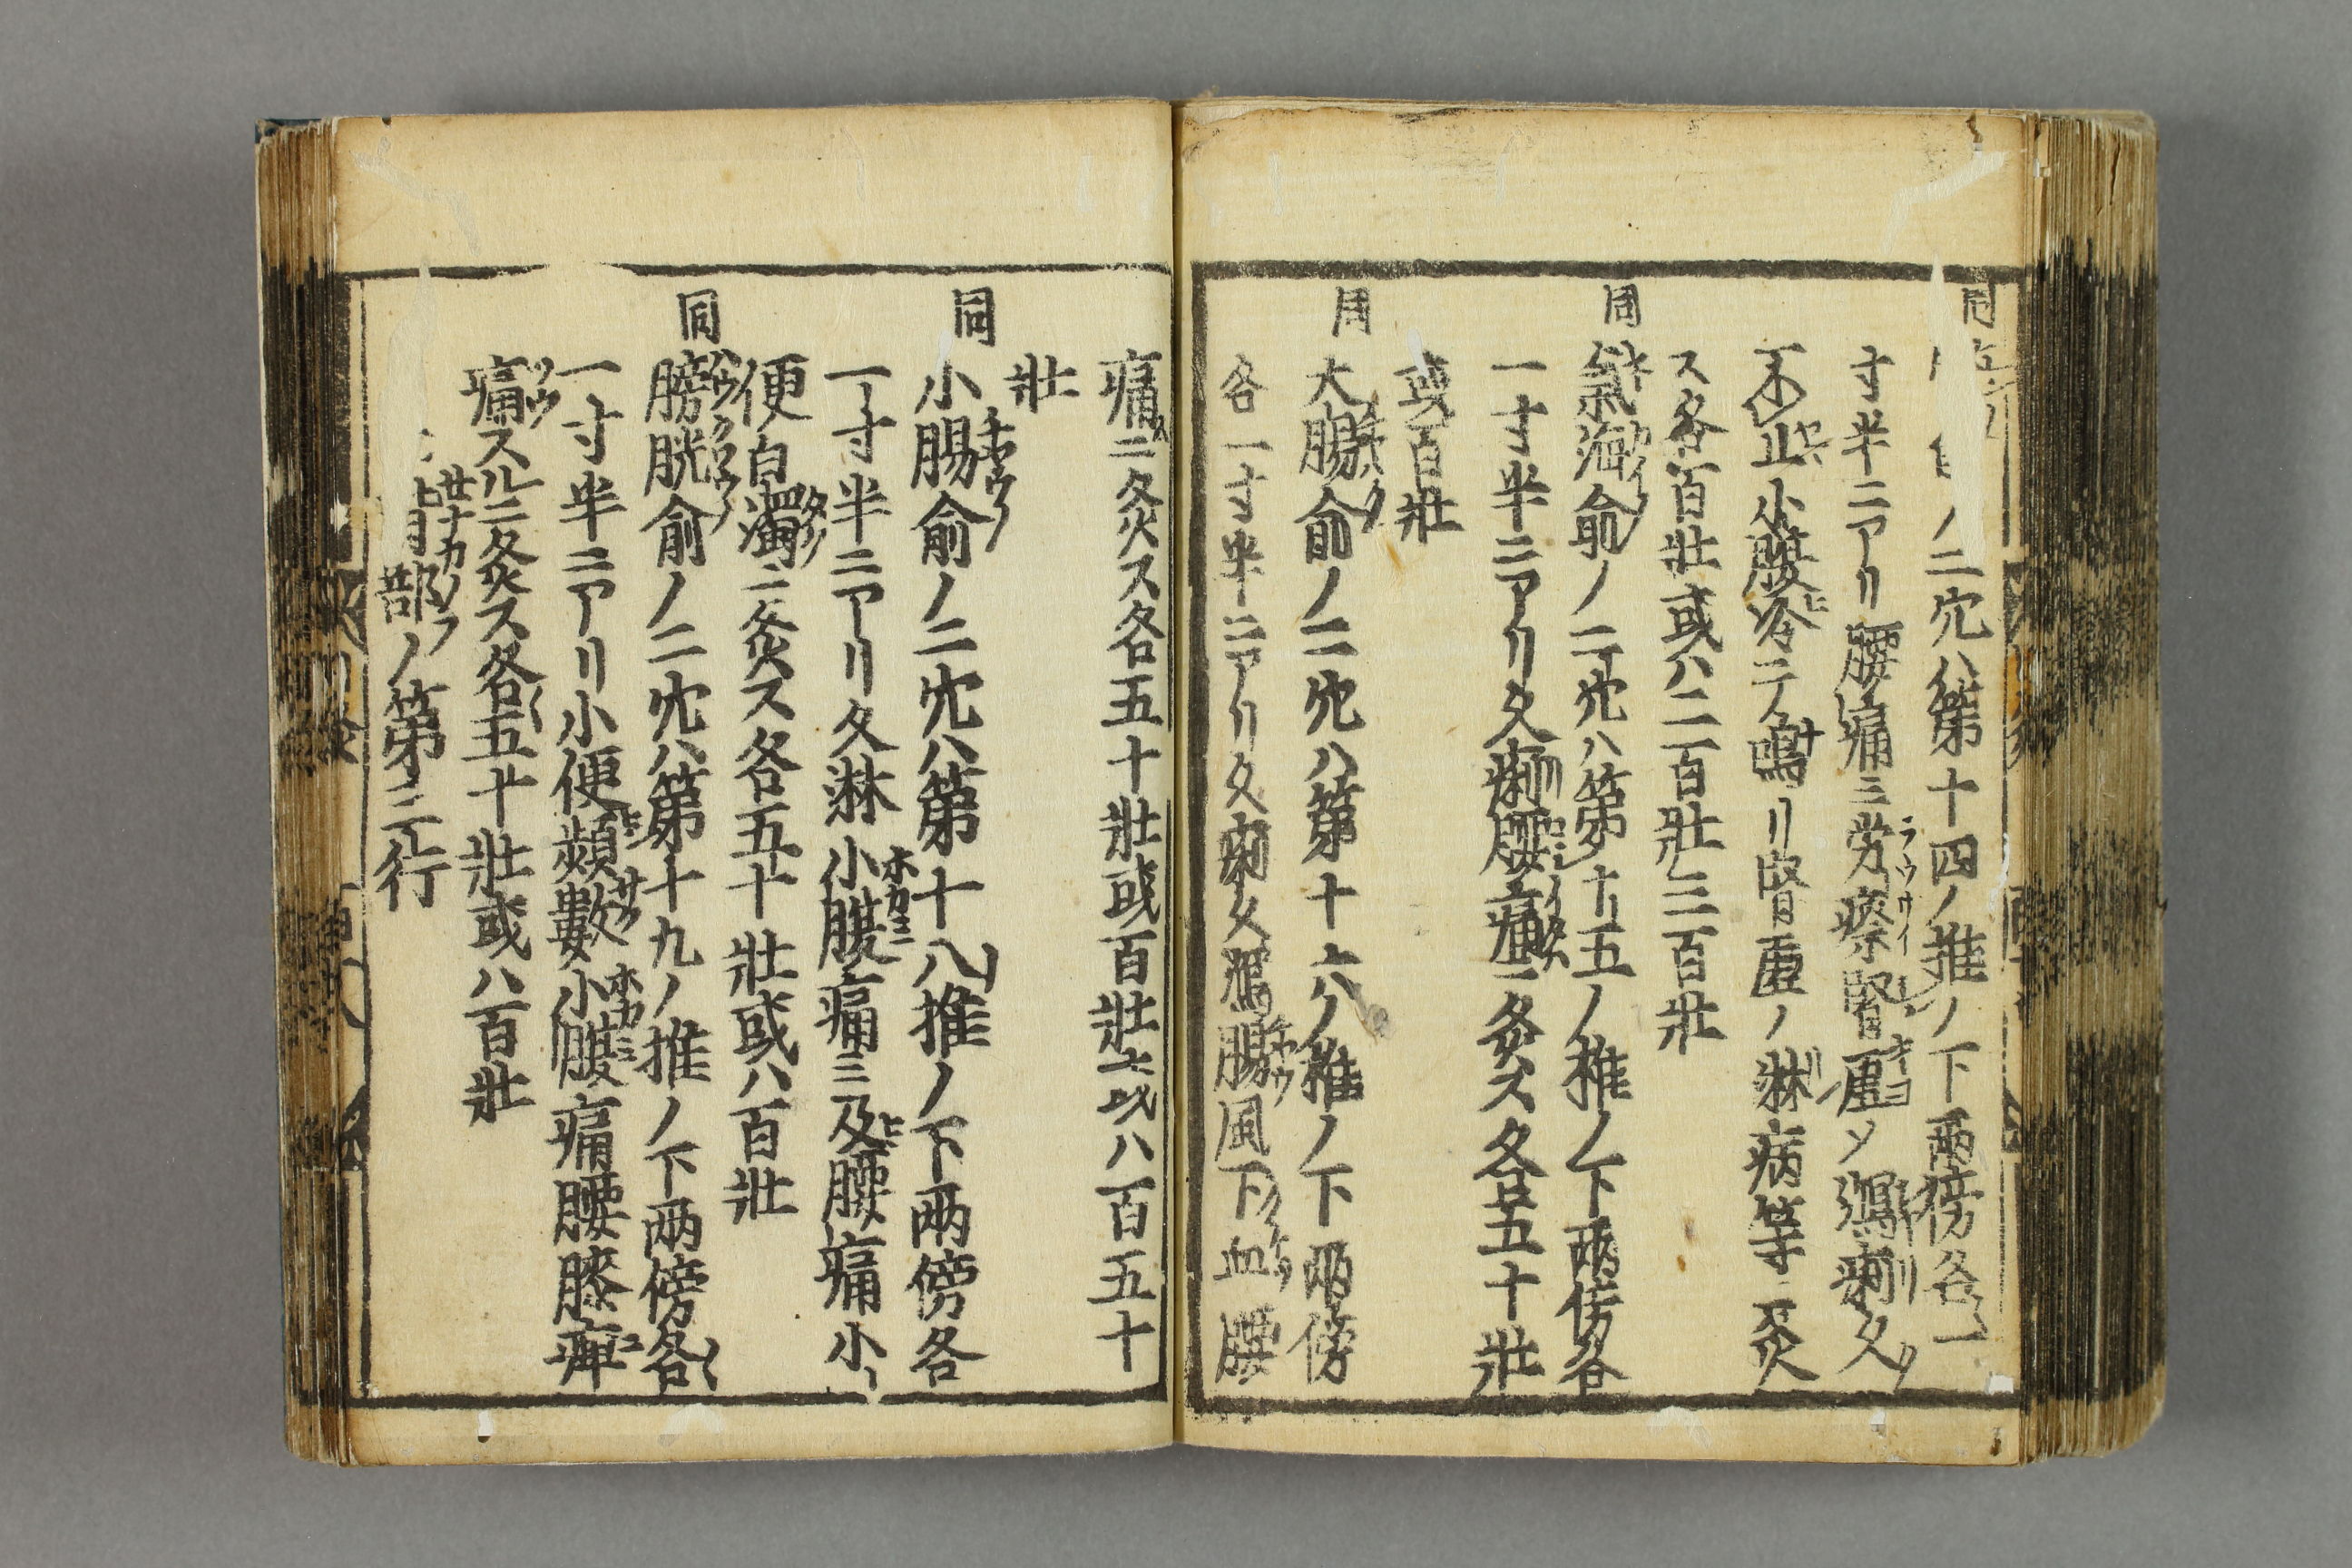 同
ノ二穴ハ第十四ノ推ノ下兩傍各一
寸半ニアリ腰痛ニ労瘵腎虛ソ瀉痢久
不止小腹冷テ鳴リ腎虛ノ淋病等ニ灸
ス各百壯或ハ二百壯三百壯
同
氣海俞ノ二穴ハ第十五ノ椎ノ下兩傍各
一寸半ニアリ久痢腰痛ニ灸ス各五十壯
或百壯
同
大膓俞ノ二穴ハ第十六ノ椎ノ下兩傍
各一寸半ニアリ久痢久瀉膓風下血腰
痛ニ灸ス各五十壯或百壯或ハ百五十
壯
同
小膓俞ノ二穴ハ第十八推ノ下兩傍各
一寸半ニアリ久淋小腹痛ニ及腰痛小
便白濁ニ灸ス各五十壯或ハ百壯
同
膀胱俞ノ二穴ハ第十九ノ推ノ下兩傍各
一寸半ニアリ小便頻數小腹痛腰膝痺
痛スルニ灸ス各五十壯或ハ百壯
背部ノ第三行